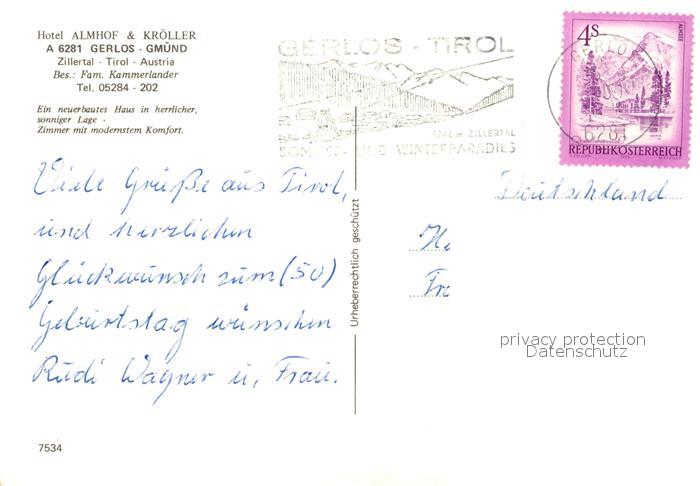 Hotel ALMHOF & KRÖLLER
A 6281 GERLOS - GMÜND
Zillertal - Tirol - Austria
Bes.: Fam. Kammerlander
Tel. 05284 - 202
Ein neuerbautes Haus in herrlicher,
sonniger Lage -
Zimmer mit modernstem Komfort.
GERLOS - TIROL
1246 m ZILLERTAL
SOMMER- UND WINTERPARADIES
4S
ALMSEE
REPUBLIK ÖSTERREICH
GERLOS
6281
Viele Grüße aus Tirol,
und herzlichen
Glückwunsch zum (50)
Geburtstag wünschen
Rudi Wagner u, Frau.
Urheberrechtlich geschützt
Deutschland
privacy protection
Datenschutz
7534